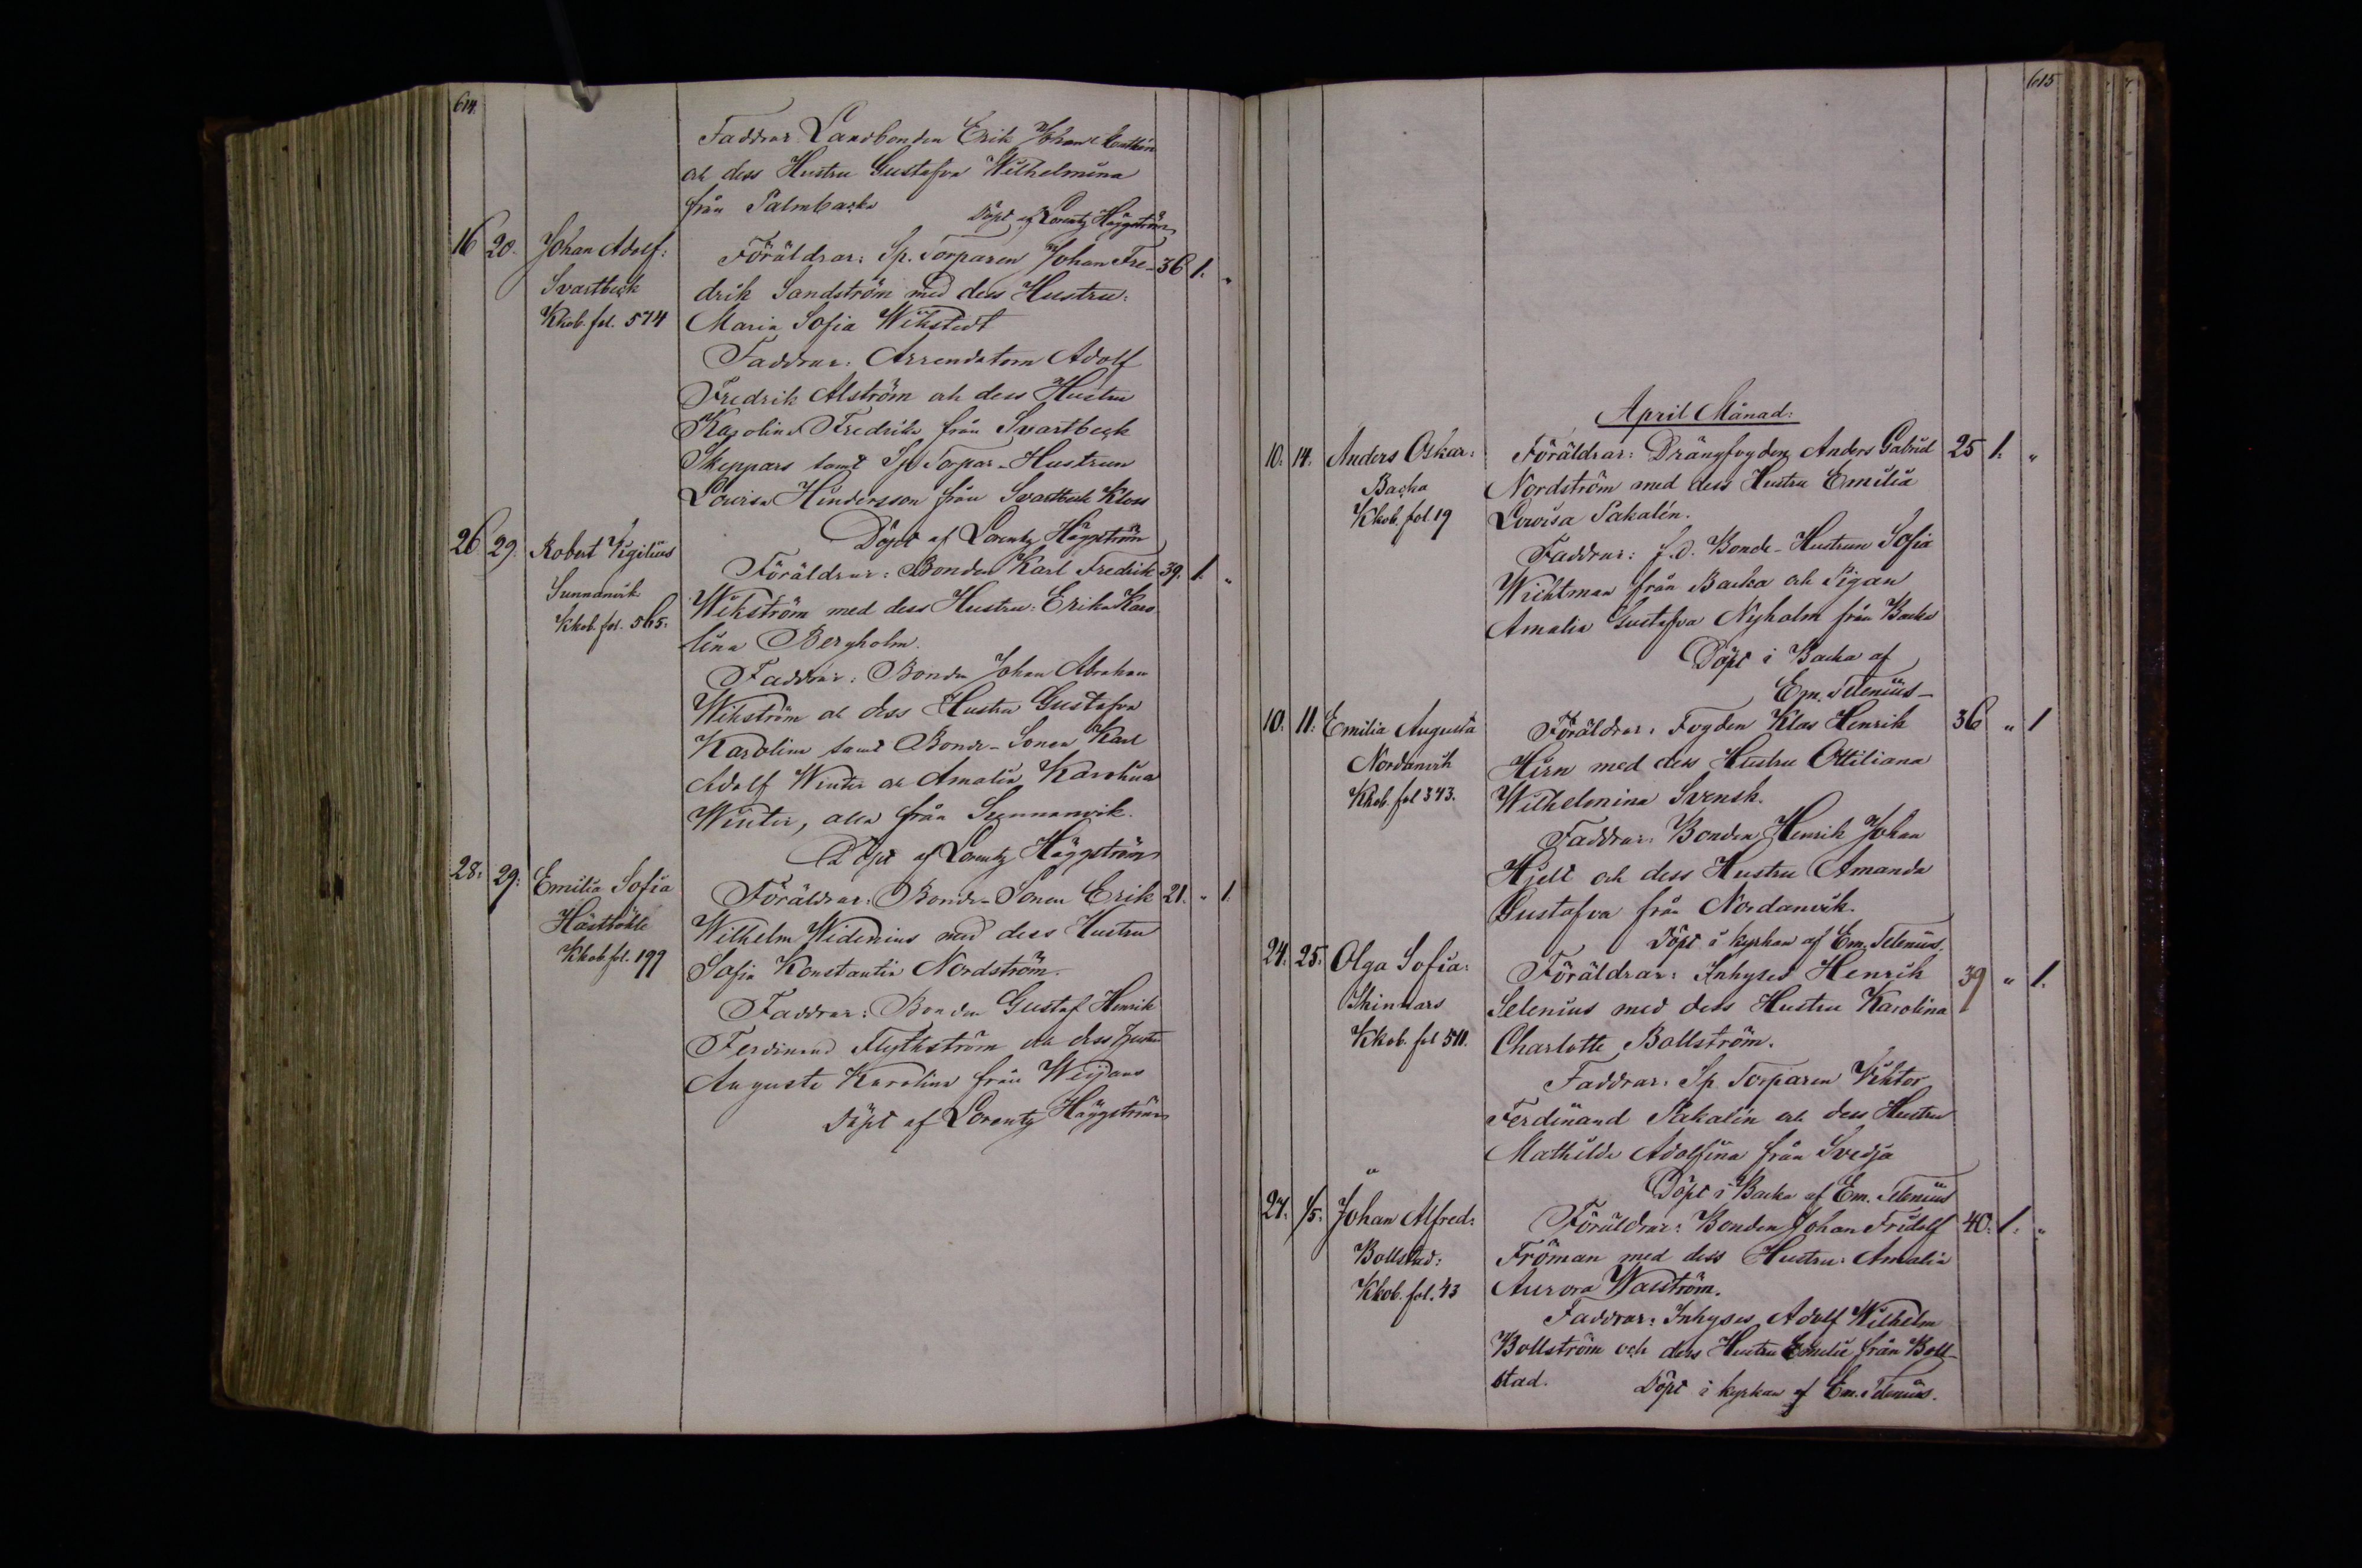 614.
Faddrar Landbonden Erik Johan
och dess Hustru Gustafva Wilhelmina
från Palmbacka
Döpt af Lorentz Häggström
16 20. Johan Adolf: Föräldrar: Sp. Torparen Johan Fre- 36 1. "
Svartbeck drik Sandström med dess Hustru:
Kkob. fol. 574 Maria Sofia Wikstedt
Faddrar: Arrendatorn Adolf
Fredrik Alström och dess Hustru
Karolina Fredrika från Svartbeck
Skeppars samt Sp. Torpar-Hustrun
Lovisa Hindersson från Svartbeck Klosu
Döpt af Lorentz Häggström
26 29. Robert Vigilius Föräldrar: Bonden Karl Fredrik 39. 1. "
Sunnanvik Wikström med dess Hustru: Erika Karo
Kkob. fol. 565. lina Bergholm.
Faddrar: Bonden Johan Abraham
Wikström och dess Hustru Gustafva
Karolina samt Bonde-Sonen Karl
Adolf Winter och Amalia Karolina
Winter, alla från Sunnanvik.
Döpt af Lorentz Häggström
28. 29. Emilia Sofia Föräldrar: Bonde-Sonen Erik 21. " 1.
Hästböhle Wilhelm Widenius med dess Hustru
Kkob fol. 199 Sofia Konstantia Nordström.
Faddrar: Bonden Gustaf Henrik
Ferdinand Flythström och dess Hustru
Augusta Karolina från Weijans
Döpt af Lorentz Häggström
615
April Månad:
10. 14. Anders Oskar: Föräldrar: Drängfogden Anders Gabriel 25 1. "
Backa Nordström med dess Hustru Emilia
Kkob. fol. 19 Lovisa Sakalén.
Faddrar: f.d. Bonde-Hustrun Sofia
Wichtman från Backa och Pigan
Amalia Gustafva Nyholm från Backa
Döpt i Backa af
Em. Telenius-
10. 11. Emilia Augusta Föräldrar: Fogden Klas Henrik 36 " 1
Nordanvik Hirn med dess Hustru Ottiliana
Kkob. fol 343. Wilhelmina Svensk.
Faddrar: Bonden Henrik Johan
Hjelt och dess Hustru Amanda
Gustafva från Nordanvik.
Döpt i kyrkan af Em. Telenius.
24. 25. Olga Sofia: Föräldrar: Inhyses Henrik 39 " 1.
Skinnars Selenius med dess Hustru Karolina
Kkob. fol 511. Charlotte Bollström.
Faddrar: Sp. Torparen Viktor
Ferdinand Sakalén och dess Hustru
Mathilda Adolfina från Svedja
Döpt i Backa af Em. Telenius
27. 1/5. Johan Alfred: Föräldrar: Bonden Johan Fridolf 40. 1. "
Bollstad: Fröman med dess Hustru: Amalia
Kkob. fol. 43 Aurora Waström.
Faddrar: Inhyses Adolf Wilhelm
Bollström och dess Hustru Emelie från Boll-
stad. Döpt i kyrkan af Em. Telenius.